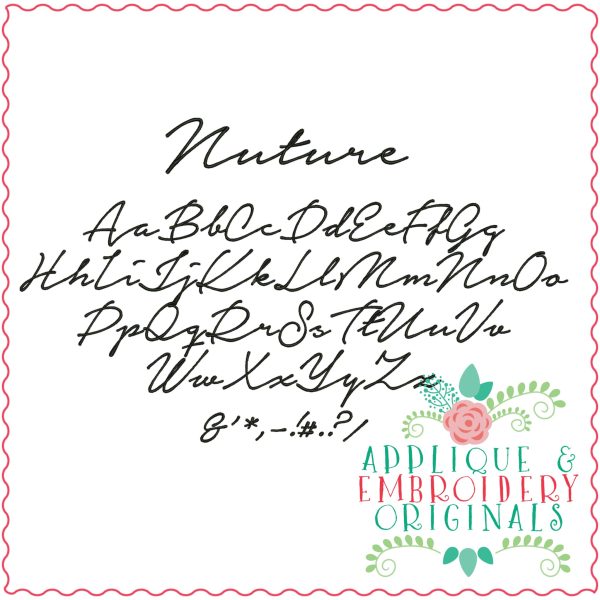 Nuture
AaBbCcDdEeFfGg
HhIiJjKkLlMmNnOo
PpQqRrSsTtUuVv
WwXxYyZz
&'*,-!#..?/
APPLIQUE &
EMBROIDERY
ORIGINALS